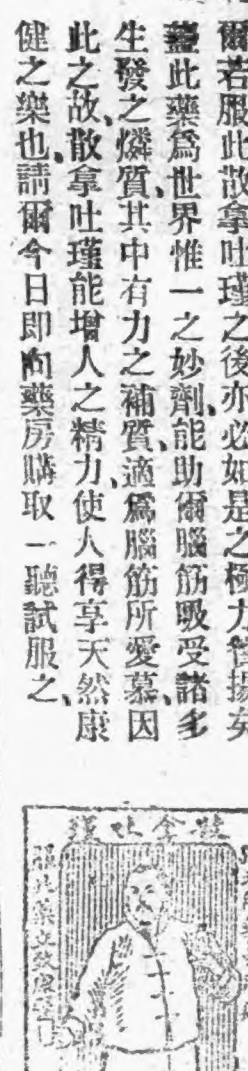 爾若服此散拿吐瑾之後亦必如是之極力
蓋此藥爲世界惟一之妙劑、能助爾腦筋吸受諸多
生發之燐質、其中有力之補質、適爲腦筋所愛慕、因
此之故、散拿吐瑾能增人之精力、使人得享天然康
健之樂也、請爾今日即向藥房購取一聽試服之、
散拿吐瑾
服此藥立致